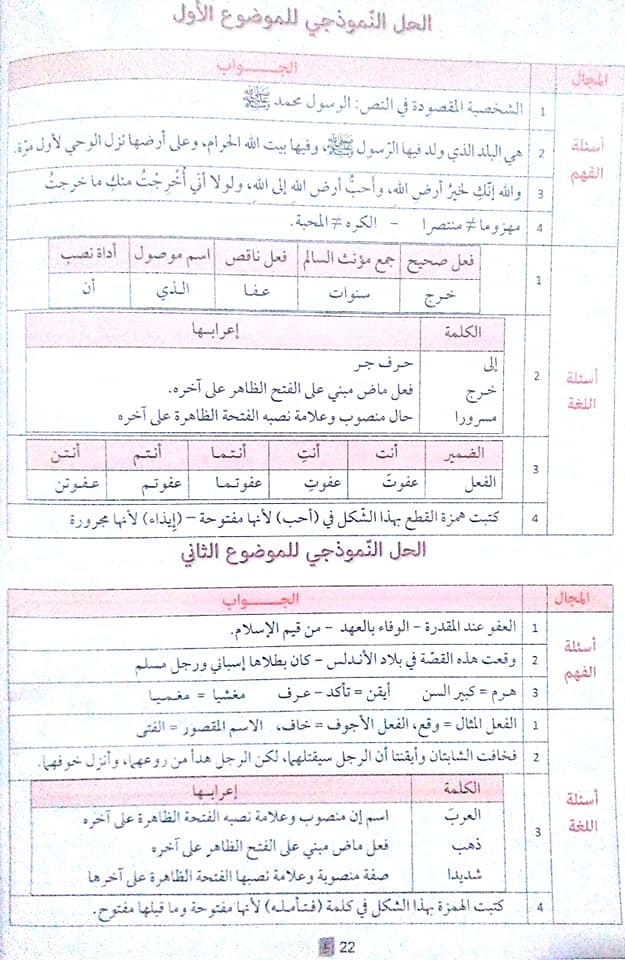 الحل النّموذجي للموضوع الأول
المجال الجـــواب
أسئلة الفهم
1 الشخصية المقصودة في النص: الرسول محمد ﷺ
2 هي البلد الذي ولد فيها الرّسول ﷺ، وفيها بيت الله الحرام، وعلى أرضها نزل الوحي لأول مرّة.
3 والله إنّكِ لخيرُ أرض اللهِ، وأحبُّ أرض اللهِ إلى اللهِ، ولولا أنّي أُخرِجْتُ منكِ ما خرجتُ
4 مهزوما ≠ منتصرا – الكره ≠ المحبة.
أسئلة اللغة
1 فعل صحيح جمع مؤنث السالم فعل ناقص اسم موصول أداة نصب
خرج سنوات عـفـا الـذي أن
2 الكلمة إعرابـها
إلى حـرف جـر
خـرج فعل ماض مبني على الفتح الظاهر على آخره.
مسرورا حال منصوب وعلامة نصبه الفتحة الظاهرة على آخره
3 الضمير أنت أنتِ أنـتـمـا أنـتـم أنـتـن
الفعل عفوتَ عفوتِ عفوتـمـا عفوتـم عـفـوتن
4 كتبت همزة القطع بهذا الشّكل في (أحب) لأنها مفتوحة – (إيذاء) لأنها مجرورة
الحل النّموذجي للموضوع الثاني
المجال الجـــواب
أسئلة الفهم
1 العفو عند المقدرة – الوفاء بالعهد – من قيم الإسلام.
2 وقعت هذه القصّة في بلاد الأندلس – كان بطلاها إسباني ورجل مسلم
3 هـرم = كبير السن أيقن = تأكد – عـرف مغشيا = مغـمـيـا
أسئلة اللغة
1 الفعل المثال = وقع، الفعل الأجوف = خاف، الاسم المقصور = الفتى
2 فخافت الشابتان وأيقنتا أن الرجل سيقتلهما، لكن الرجل هدأ من روعهما، وأنزل خوفهما.
3 الكلمة إعرابـها
العربَ اسم إن منصوب وعلامة نصبه الفتحة الظاهرة على آخره
ذهب فعل ماض مبني على الفتح الظاهر على آخره
شديدا صفة منصوبة وعلامة نصبها الفتحة الظاهرة على آخرها
4 كتبت الهمزة بهذا الشكل في كلمة (فـتـأملـه) لأنها مفتوحة وما قبلها مفتوح.
22